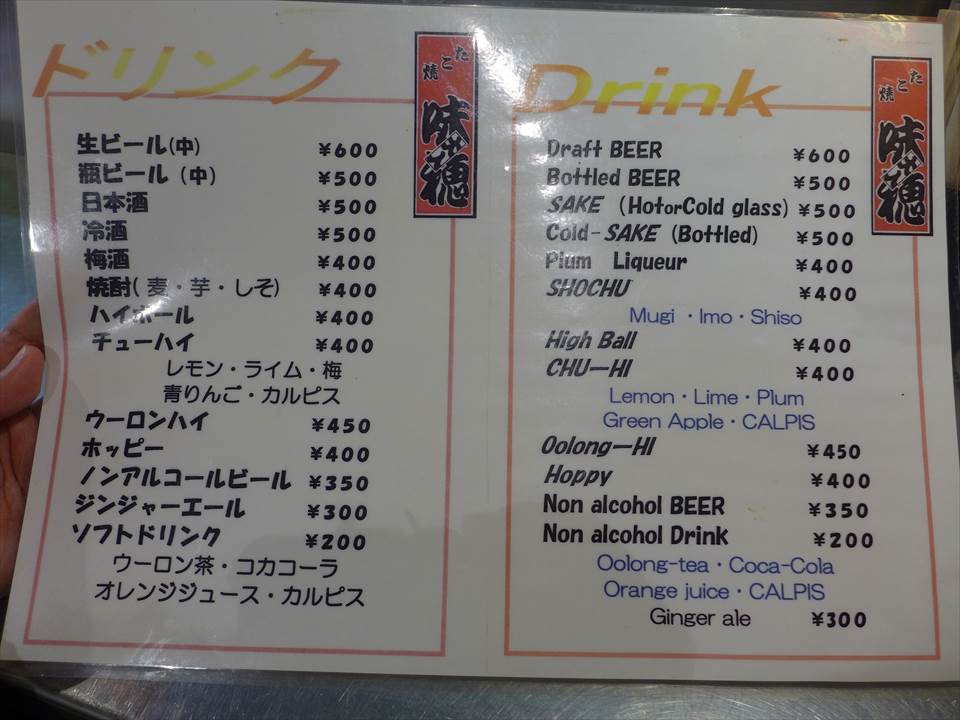 ドリンク
た
こ
焼
味穂
生ビール(中) ¥600
瓶ビール (中) ¥500
日本酒 ¥500
冷酒 ¥500
梅酒 ¥400
焼酎( 麦・芋・しそ) ¥400
ハイボール ¥400
チューハイ ¥400
レモン・ライム・梅
青りんご・カルピス
ウーロンハイ ¥450
ホッピー ¥400
ノンアルコールビール ¥350
ジンジャーエール ¥300
ソフトドリンク ¥200
ウーロン茶・コカコーラ
オレンジジュース・カルピス
Drink
た
こ
焼
味穂
Draft BEER ¥600
Bottled BEER ¥500
SAKE (HotorCold glass) ¥500
Cold-SAKE (Bottled) ¥500
Plum Liqueur ¥400
SHOCHU ¥400
Mugi ・Imo・Shiso
High Ball ¥400
CHU-HI ¥400
Lemon・Lime・Plum
Green Apple・CALPIS
Oolong-HI ¥450
Hoppy ¥400
Non alcohol BEER ¥350
Non alcohol Drink ¥200
Oolong-tea・Coca-Cola
Orange juice・CALPIS
Ginger ale ¥300